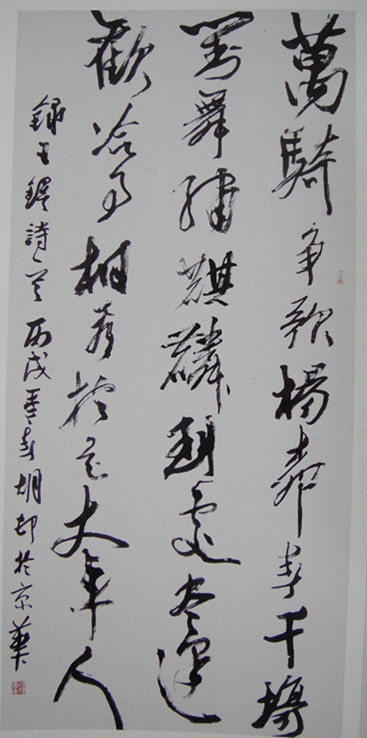 萬騎爭歌楊柳春千場
對舞繡麒麟到處盡逢
歡洽事相看總是太平人
錄王詩一首丙戌春胡於京華